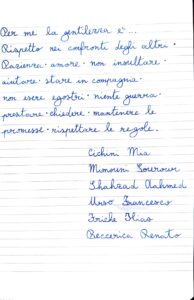 Per me la gentilezza è...
Rispetto nei confronti degli altri.
Pazienza. amore. non insultare.
aiutare. stare in compagnia.
non essere egoisti. niente guerra.
prestare. chiedere. mantenere le
promesse. rispettare le regole.
Cichini Mia
Shahzad Ahmed
Urso Francesco
Beccerica Renato